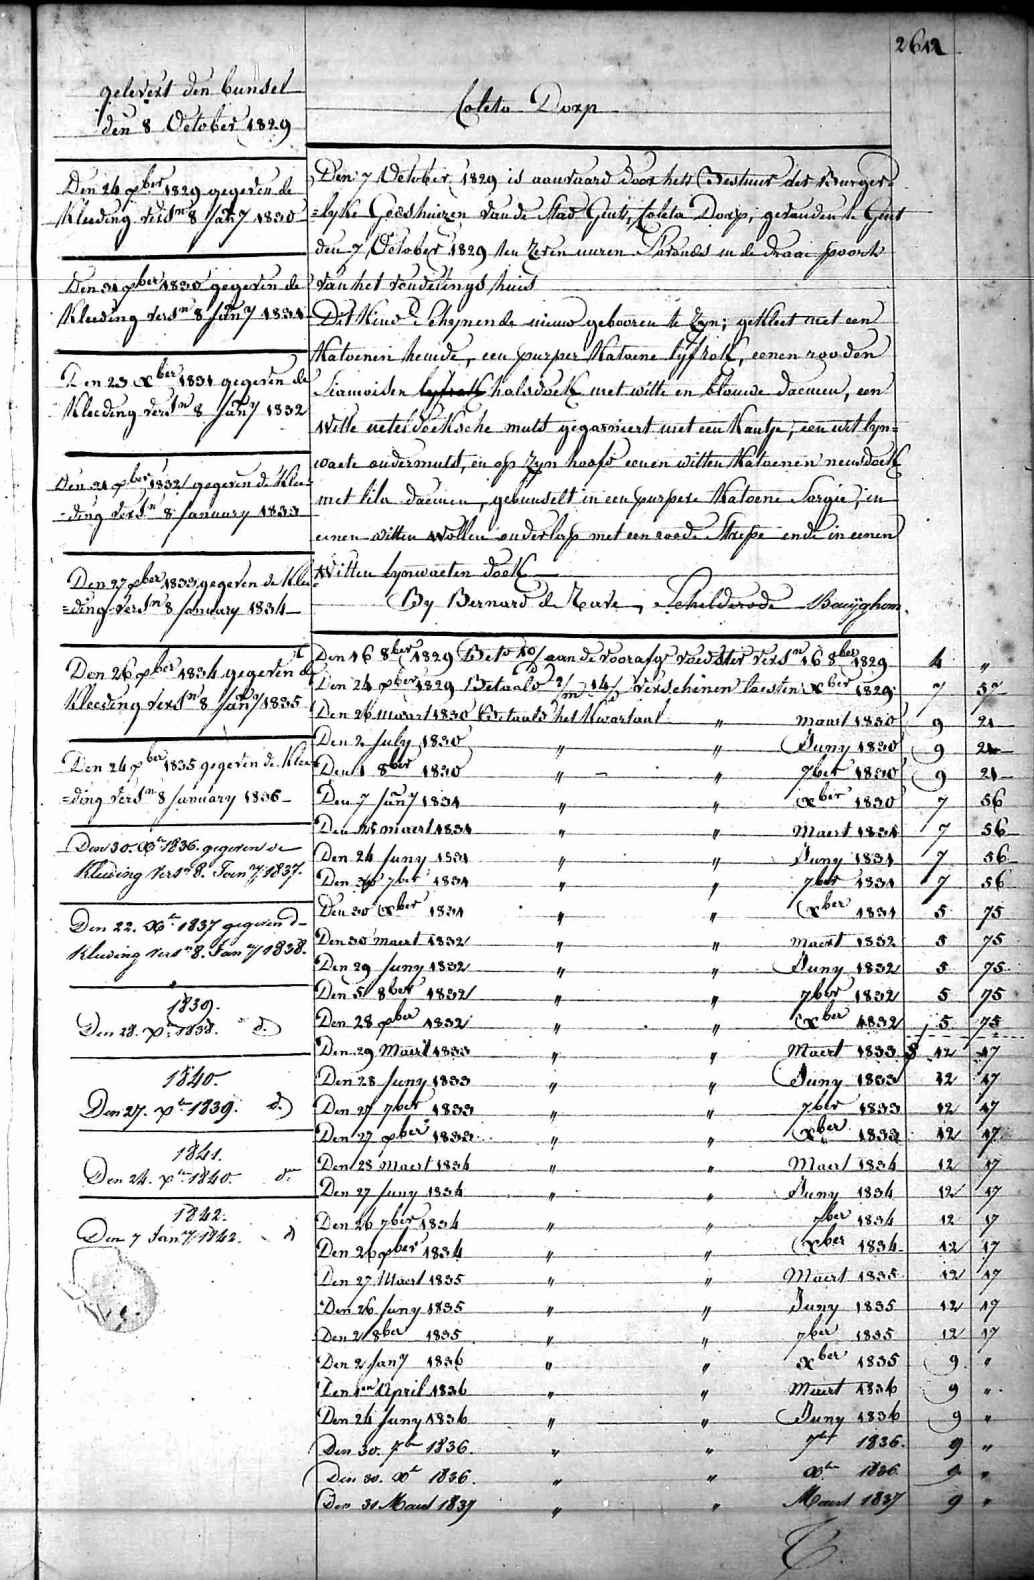 2612
gelevert den bunsel
den 8 October 1829
Den 24 xber 1829 gegeven de
Kleeding versn 8 Jany 1830
Den 31 xber 1830 gegeven de
Kleeding versn 8 Jany 1831
Den 23 xber 1831 gegeven de
Kleeding versn 8 Jany 1832
Den 21 xber 1832 gegeven de Klee
=ding versn 8 January 1833
Den 27 xber 1833 gegeven de Klee
=ding versn 8 January 1834
Den 26 xber 1834 gegeven de
Kleeding versn 8 Jany 1835
Den 24 xber 1835 gegeven de Klee
=ding versn 8 January 1836
Den 30. Xr 1836. gegeven de
Kleeding versn 8. Jany 1837.
Den 22. Xr 1837 gegeven d
Kleeding versn 8. Jany 1838.
1839.
Den 28. Xr 1838. d.
1840.
Den 27. Xr 1839. d.
1841.
Den 24. Xr 1840. do
1842.
Den 7 Jany 1842. d
Coleta Dorp
Den 7 October 1829 is aanvaard door het Bestuur der Burger
=lyke Godshuizen van de Stad Gent, Coleta Dorp, gevonden te Gent
den 7 October 1829 ten zeven uuren S'avonds in de draai poorte
van het vondelings huis
Dit Kind Schynende nieuw gebooren te Zyn; gekleet met een
Katoenen hemde, een purper Katoene lyfrok, eenen rooden
Siamoisen lyfrok halsdoek met witte en blouwe daemen, een
Witte neteldoeksche muts gegarniert met een Kantje, een wit lyn=
waete ondermuts, en op Zyn hoofd eenen witten Katoenen neusdoek
met lila daemen, gebunselt in een purpere Katoene Sargie, en
eenen witten Wollen onderlap met een roode Strepe ende in eenen
Witten lynwaeten doek
By Bernard de Neve, Schelderode Bauyghom.
Den 16 8ber 1829 Beto aan de voorafge voedster versn 16 8ber 1829 4 "
Den 24 xber 1829 Betaald 2/m 14/d verschenen laesten xber 1829 7 57
Den 26 maart 1830 Betaald het Kwartaal " maart 1830 9 21
Den 2 July 1830 " " Juny 1830 9 21
Den 1 8ber 1830 " " 7ber 1830 9 21
Den 7 Jany 1831 " " xber 1830 7 56
Den 25 maert 1831 " " Maert 1831 7 56
Den 24 Juny 1831 " " Juny 1831 7 56
Den 30 7ber 1831 " " 7ber 1831 7 56
Den 30 xber 1831 " " xber 1831 5 75
Den 30 maert 1832 " " maert 1832 5 75
Den 29 Juny 1832 " " Juny 1832 5 75
Den 5 8ber 1832 " " 7ber 1832 5 75
Den 28 xber 1832 " " xber 1832 5 75
Den 29 Maert 1833 " " Maert 1833 12 17
Den 28 Juny 1833 " " Juny 1833 12 17
Den 27 7ber 1833 " " 7ber 1833 12 17
Den 27 xber 1833 " " xber 1833 12 17
Den 28 Maert 1834 " " Maert 1834 12 17
Den 27 Juny 1834 " " Juny 1834 12 17
Den 26 7ber 1834 " " 7ber 1834 12 17
Den 26 xber 1834 " " xber 1834 12 17
Den 27 Maert 1835 " " Maert 1835 12 17
Den 26 Juny 1835 " " Juny 1835 12 17
Den 2 8ber 1835 " " 7ber 1835 12 17
Den 2 Jany 1836 " " xber 1835 9 "
Den 1en April 1836 " " Maert 1836 9 "
Den 24 Juny 1836 " " Juny 1836 9 "
Den 30. 7br 1836. " " 7br 1836. 9 "
Den 30. Xr 1836. " " Xr 1836. 9 "
Den 31 Maert 1837 " " Maert 1837 9 "